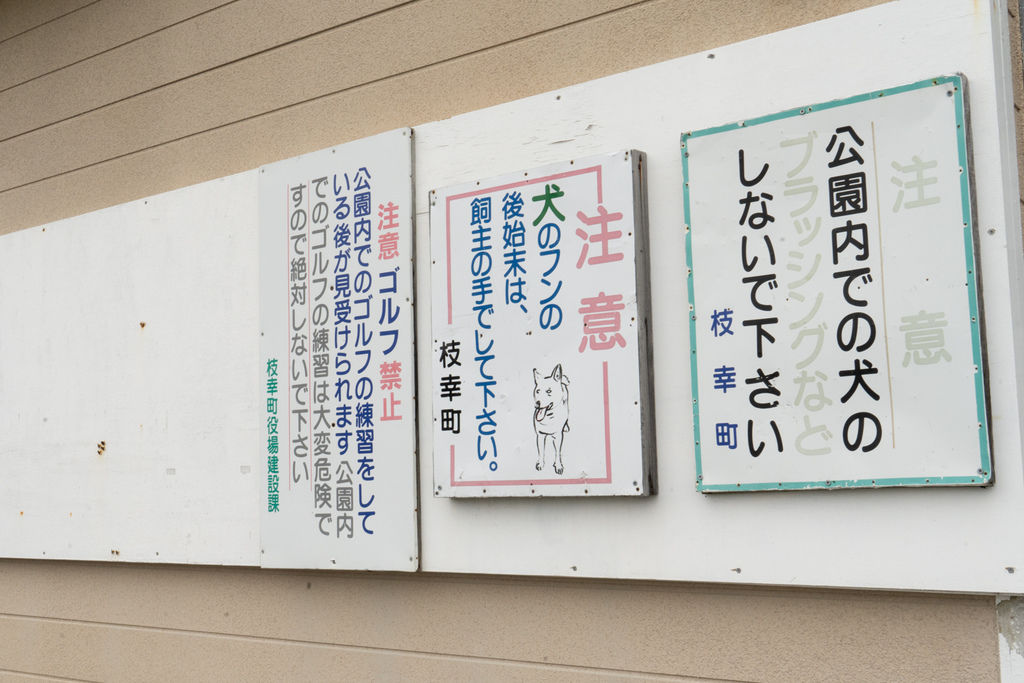 注意
公園内での犬の
ブラッシングなど
しないで下さい
枝幸町
注意
犬のフンの
後始末は、
飼主の手でして下さい。
枝幸町
注意 ゴルフ禁止
公園内でのゴルフの練習をして
いる後が見受けられます 公園内
でのゴルフの練習は大変危険で
すので絶対しないで下さい
枝幸町役場建設課